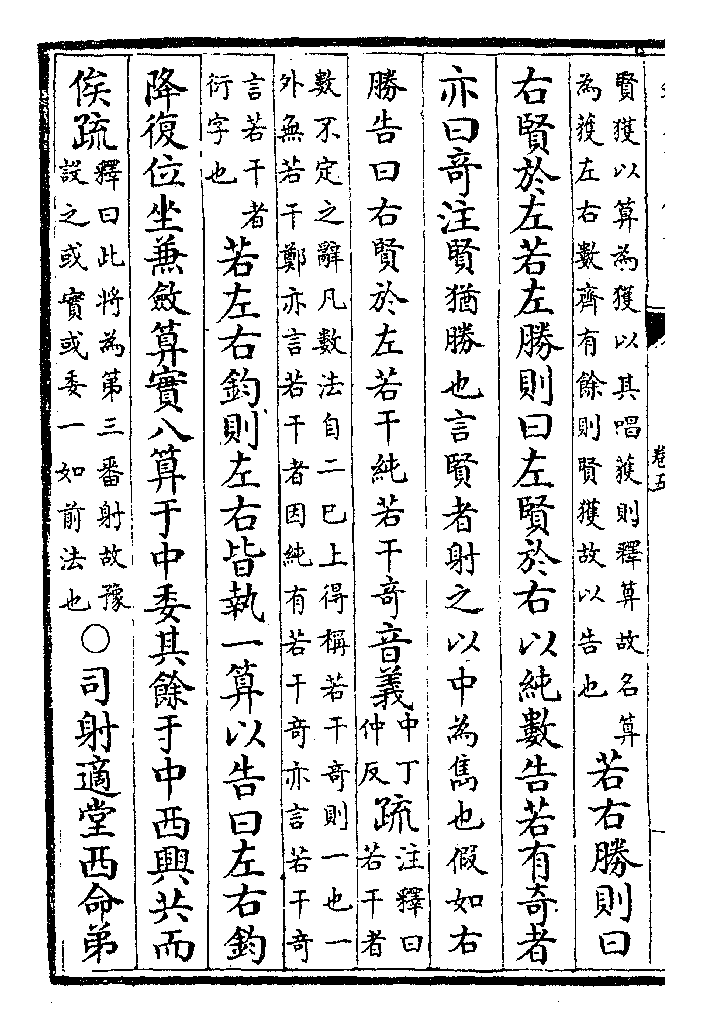 卷五
賢獲以算為獲以其唱獲則釋算故名算
為獲左右數齊有餘則賢獲故以告也
若右勝則曰
右賢於左若左勝則曰左賢於右以純數告若有奇者
亦曰竒注賢猶勝也言賢者射之以中為雋也假如右
勝告曰右賢於左若干純若干竒音義
中丁
仲反
疏
注釋曰
若干者
數不定之辭凡數法自二已上得稱若干竒則一也一
外無若干鄭亦言若干者因純有若干竒亦言若干奇
言若干者
衍字也
若左右鈞則左右皆執一算以告曰左右鈞
降復位坐兼斂算實八算于中委其餘于中西興共而
俟疏
釋曰此將為第三番射故豫
設之或實或委一如前法也
○司射適堂西命弟